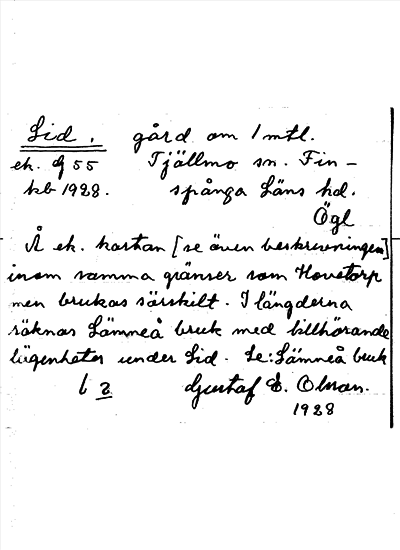 Lid. gård om 1 mtl.
ek. Cf 55 Tjällmo sn. Fin-
kb 1928. spånga Läns hd.
Ögl
Å ek. kartan [se även beskrivningen]
inom samma gränser som Hovetorp
men brukas särskilt. I längderna
räknas Lämneå bruk med tillhörande
lägenheter under Lid. Se: Lämneå bruk
b 2 Gustaf E. Olsson.
1928